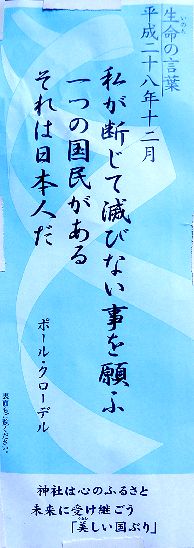 生命の言葉
いのち
平成二十八年十二月
私が断じて滅びない事を願ふ
一つの国民がある
それは日本人だ
ポール・クローデル
表面もご覧ください。
神社は心のふるさと
未来に受け継ごう
「美しい国ぶり」
うるわ